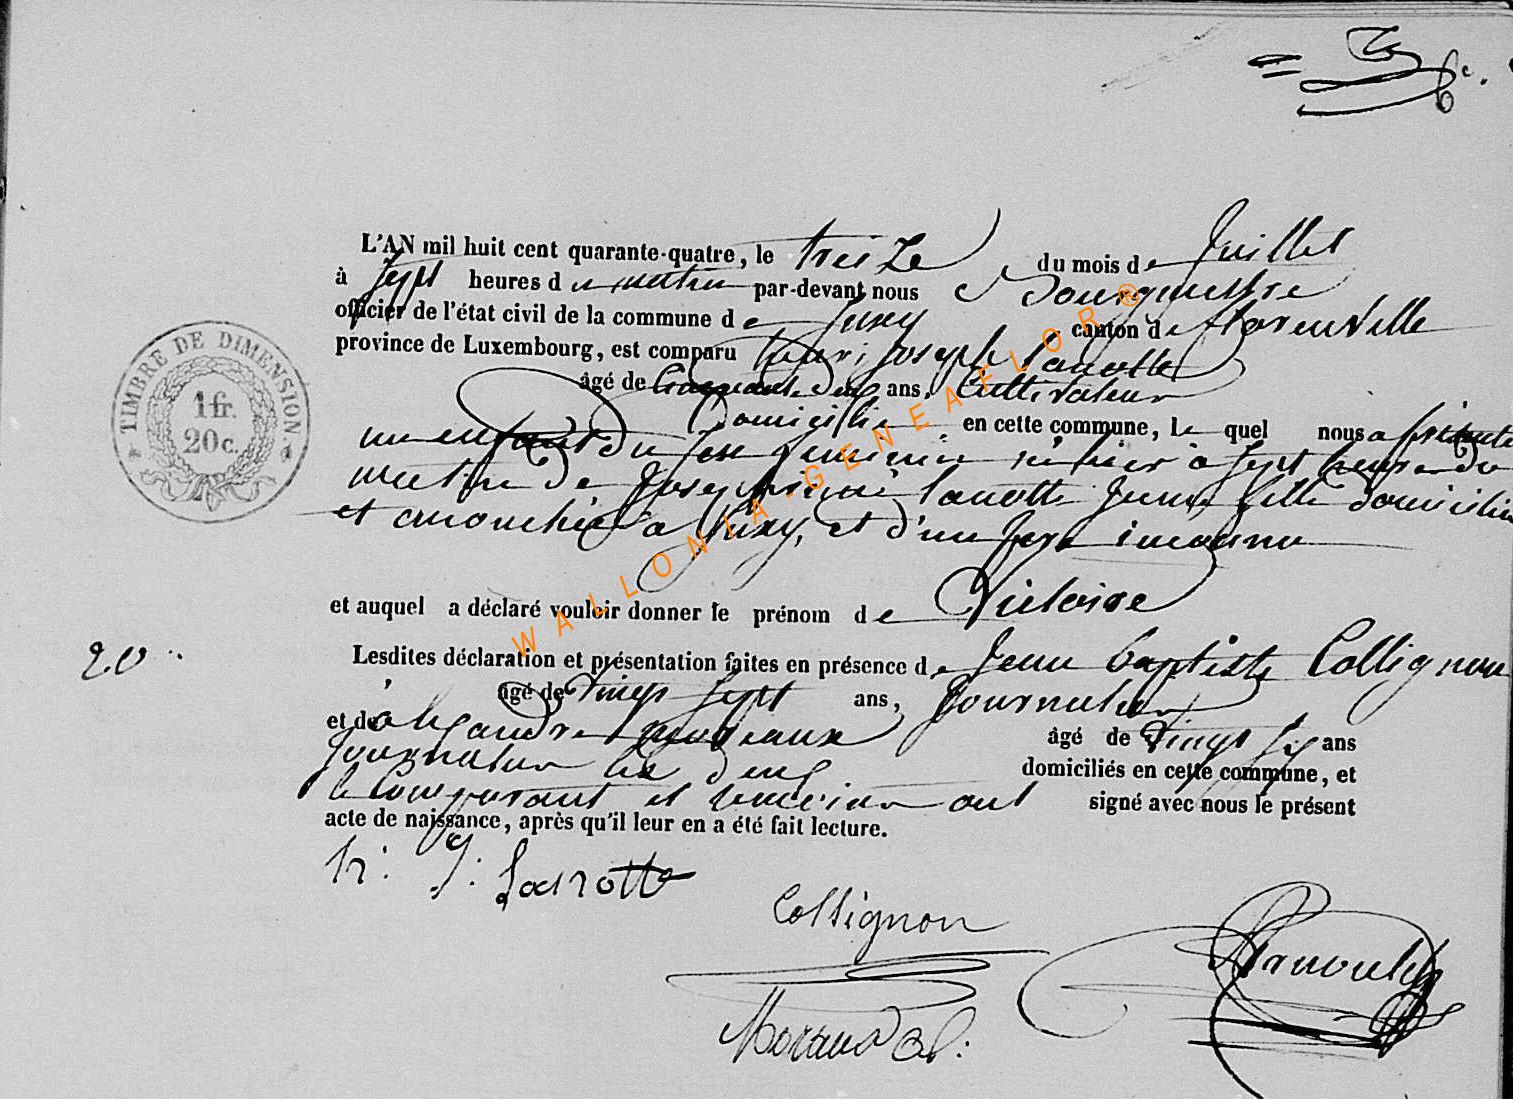 L'AN mil huit cent quarante-quatre, le treize du mois de Juillet
à sept heures de matin par-devant nous Bourgmestre
officier de l'état civil de la commune de Suxy canton de florenville
province de Luxembourg, est comparu henri Joseph Lanotte
âgé de cinquante deux ans, Cultivateur
Domicilié en cette commune, le quel nous a présenté
un enfant du sexe feminin né hier à sept heures du
matin de lanotte Jeune fille domiciliée
et accouchée à Suxy, et d'un père inconnu
et auquel a déclaré vouloir donner le prénom de Victoire
20
Lesdites déclaration et présentation faites en présence de Jean baptiste Collignon
âgé de vingt sept ans, Journalier
et de alexandre âgé de vingt six ans
Journalier les deux domiciliés en cette commune, et
le comparant et temoins ont signé avec nous le présent
acte de naissance, après qu'il leur en a été fait lecture.
h: J: Lanotte
Collignon
Arnould
Morand al:
TIMBRE DE DIMENSION.
1 fr.
20 c.
WALLONIA-GENEAFLOR®